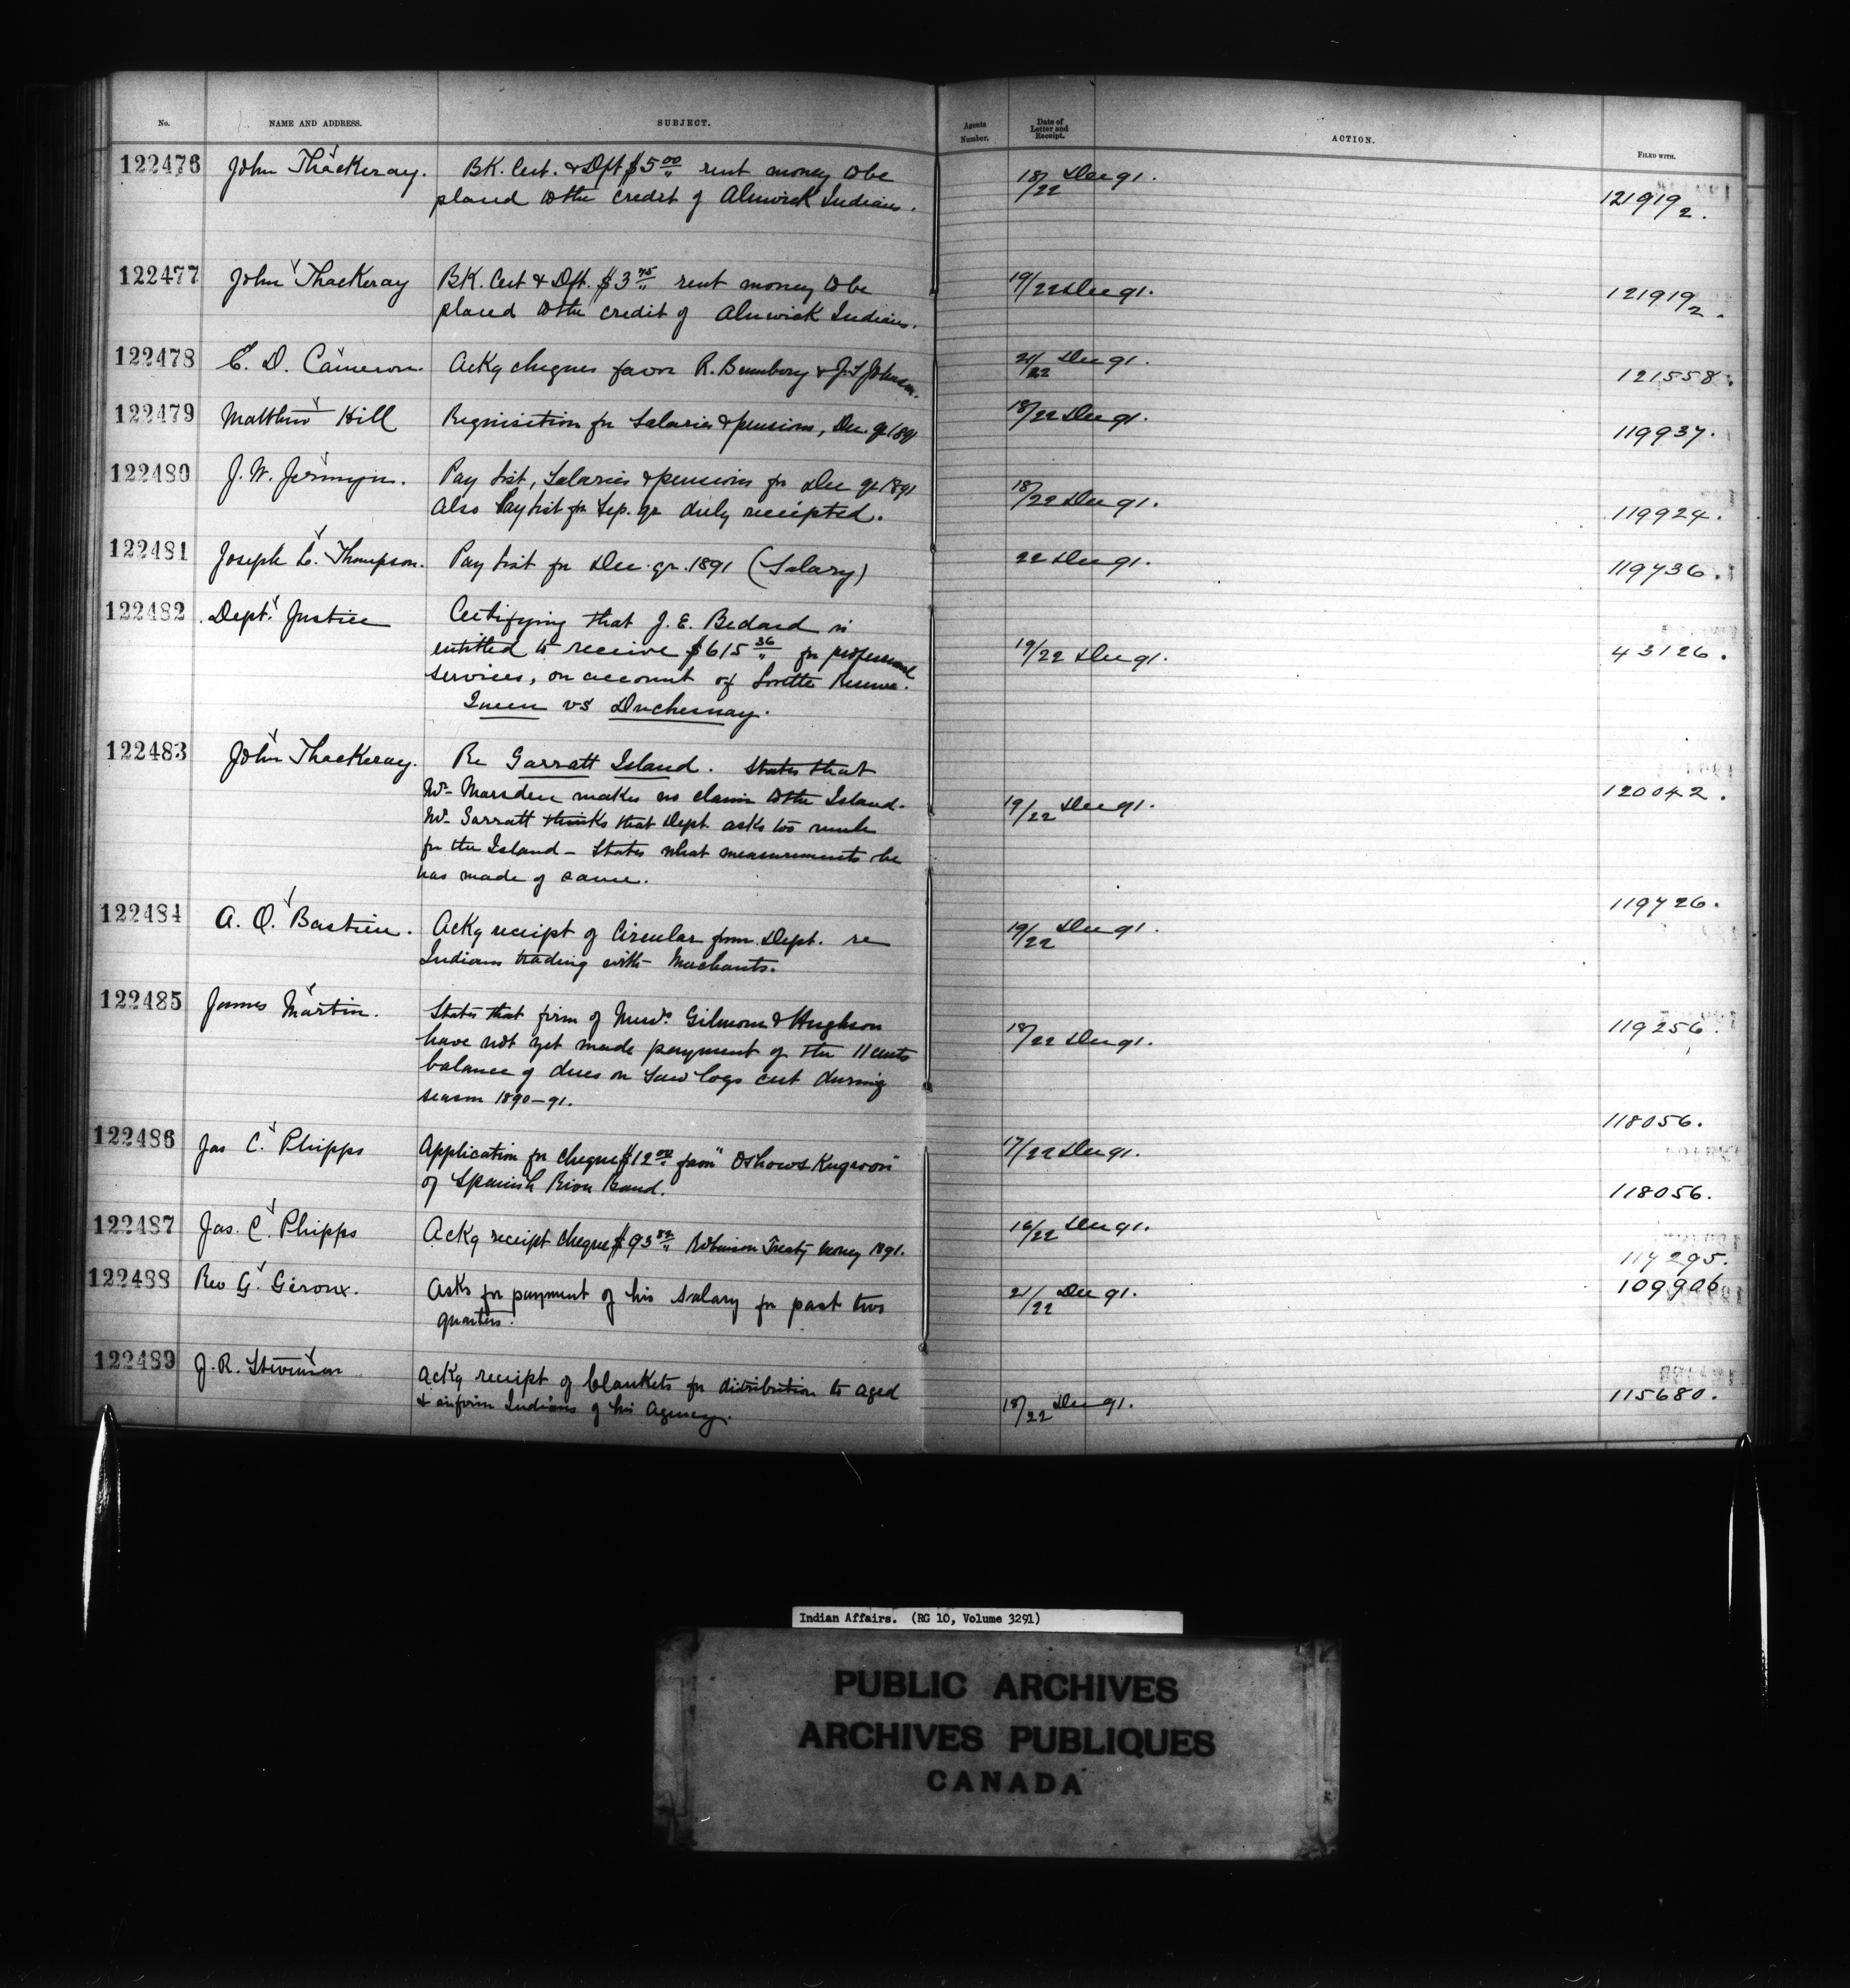 No. NAME AND ADDRESS. SUBJECT. Agents Number. Date of Letter and Receipt. ACTION. FILED WITH.
122476 John Thackeray. BK. Cert. & Dft $5 00/" rent money to be 18/22 Dec 91. 121919/2.
placed to the credit of Alnwick Indians.
122477 John Thackeray BK. Cert & Dft. $3 75/" rent money to be 19/22 Dec 91. 121919/2.
placed to the credit of Alnwick Indians.
122478 E. D. Cameron. Ackg cheques favor R. & J. T. Johnson. 21/22 Dec 91. 121558.
122479 Matthew Hill Requisition for Salaries & pensions, Dec. qr 1891 18/22 Dec 91. 119937.
122480 J. W. Jermyn. Pay list, Salaries & pensions for Dec qr 1891 18/22 Dec 91. 119924.
Also Paylist for Sep. qr duly receipted.
122481 Joseph L. Thompson. Pay list for Dec. qr. 1891 (Salary) 22 Dec 91. 119736.
122482 Dept. Justice Certifying that J. E. Bedard is
entitled to receive $615 36/" for professional 19/22 Dec 91. 43126.
services, on account of Lorette Reserve.
Queen vs Duchesnay.
122483 John Thackeray. Re Garratt Island. States that
Mr. Marsden makes no claim to the Island. 19/22 Dec 91. 120042.
Mr. Garratt thinks that Dept. asks too much
for the Island - States what measurements he
has made of same.
122484 A. O. Bastien. Ackg receipt of Circular from Dept. re 19/22 Dec 91. 119726.
Indians trading with Merchants.
122485 James Martin. States that firm of Messrs. Gilmour & Hughson 18/22 Dec 91. 119256.
have not yet made payment of the 11 cents
balance of dues on Saw logs cut during
season 1890-91.
122486 Jas C. Phipps Application for cheque $12 00/" favor 17/22 Dec 91. 118056.
of Spanish River Band.
122487 Jas. C. Phipps Ackg receipt cheque $93 Robinson Treaty money 1891. 16/22 Dec 91. 118056.
117295.
122488 Rev G. Giroux. Asks for payment of his Salary for past two 21/22 Dec 91. 109906
quarters.
122489 J. R. Stevenson Ackg receipt of blankets for distribution to aged 18/22 Dec 91. 115680.
& infirm Indians of his Agency.
Indian Affairs. (RG 10, Volume 3291)
PUBLIC ARCHIVES
ARCHIVES PUBLIQUES
CANADA